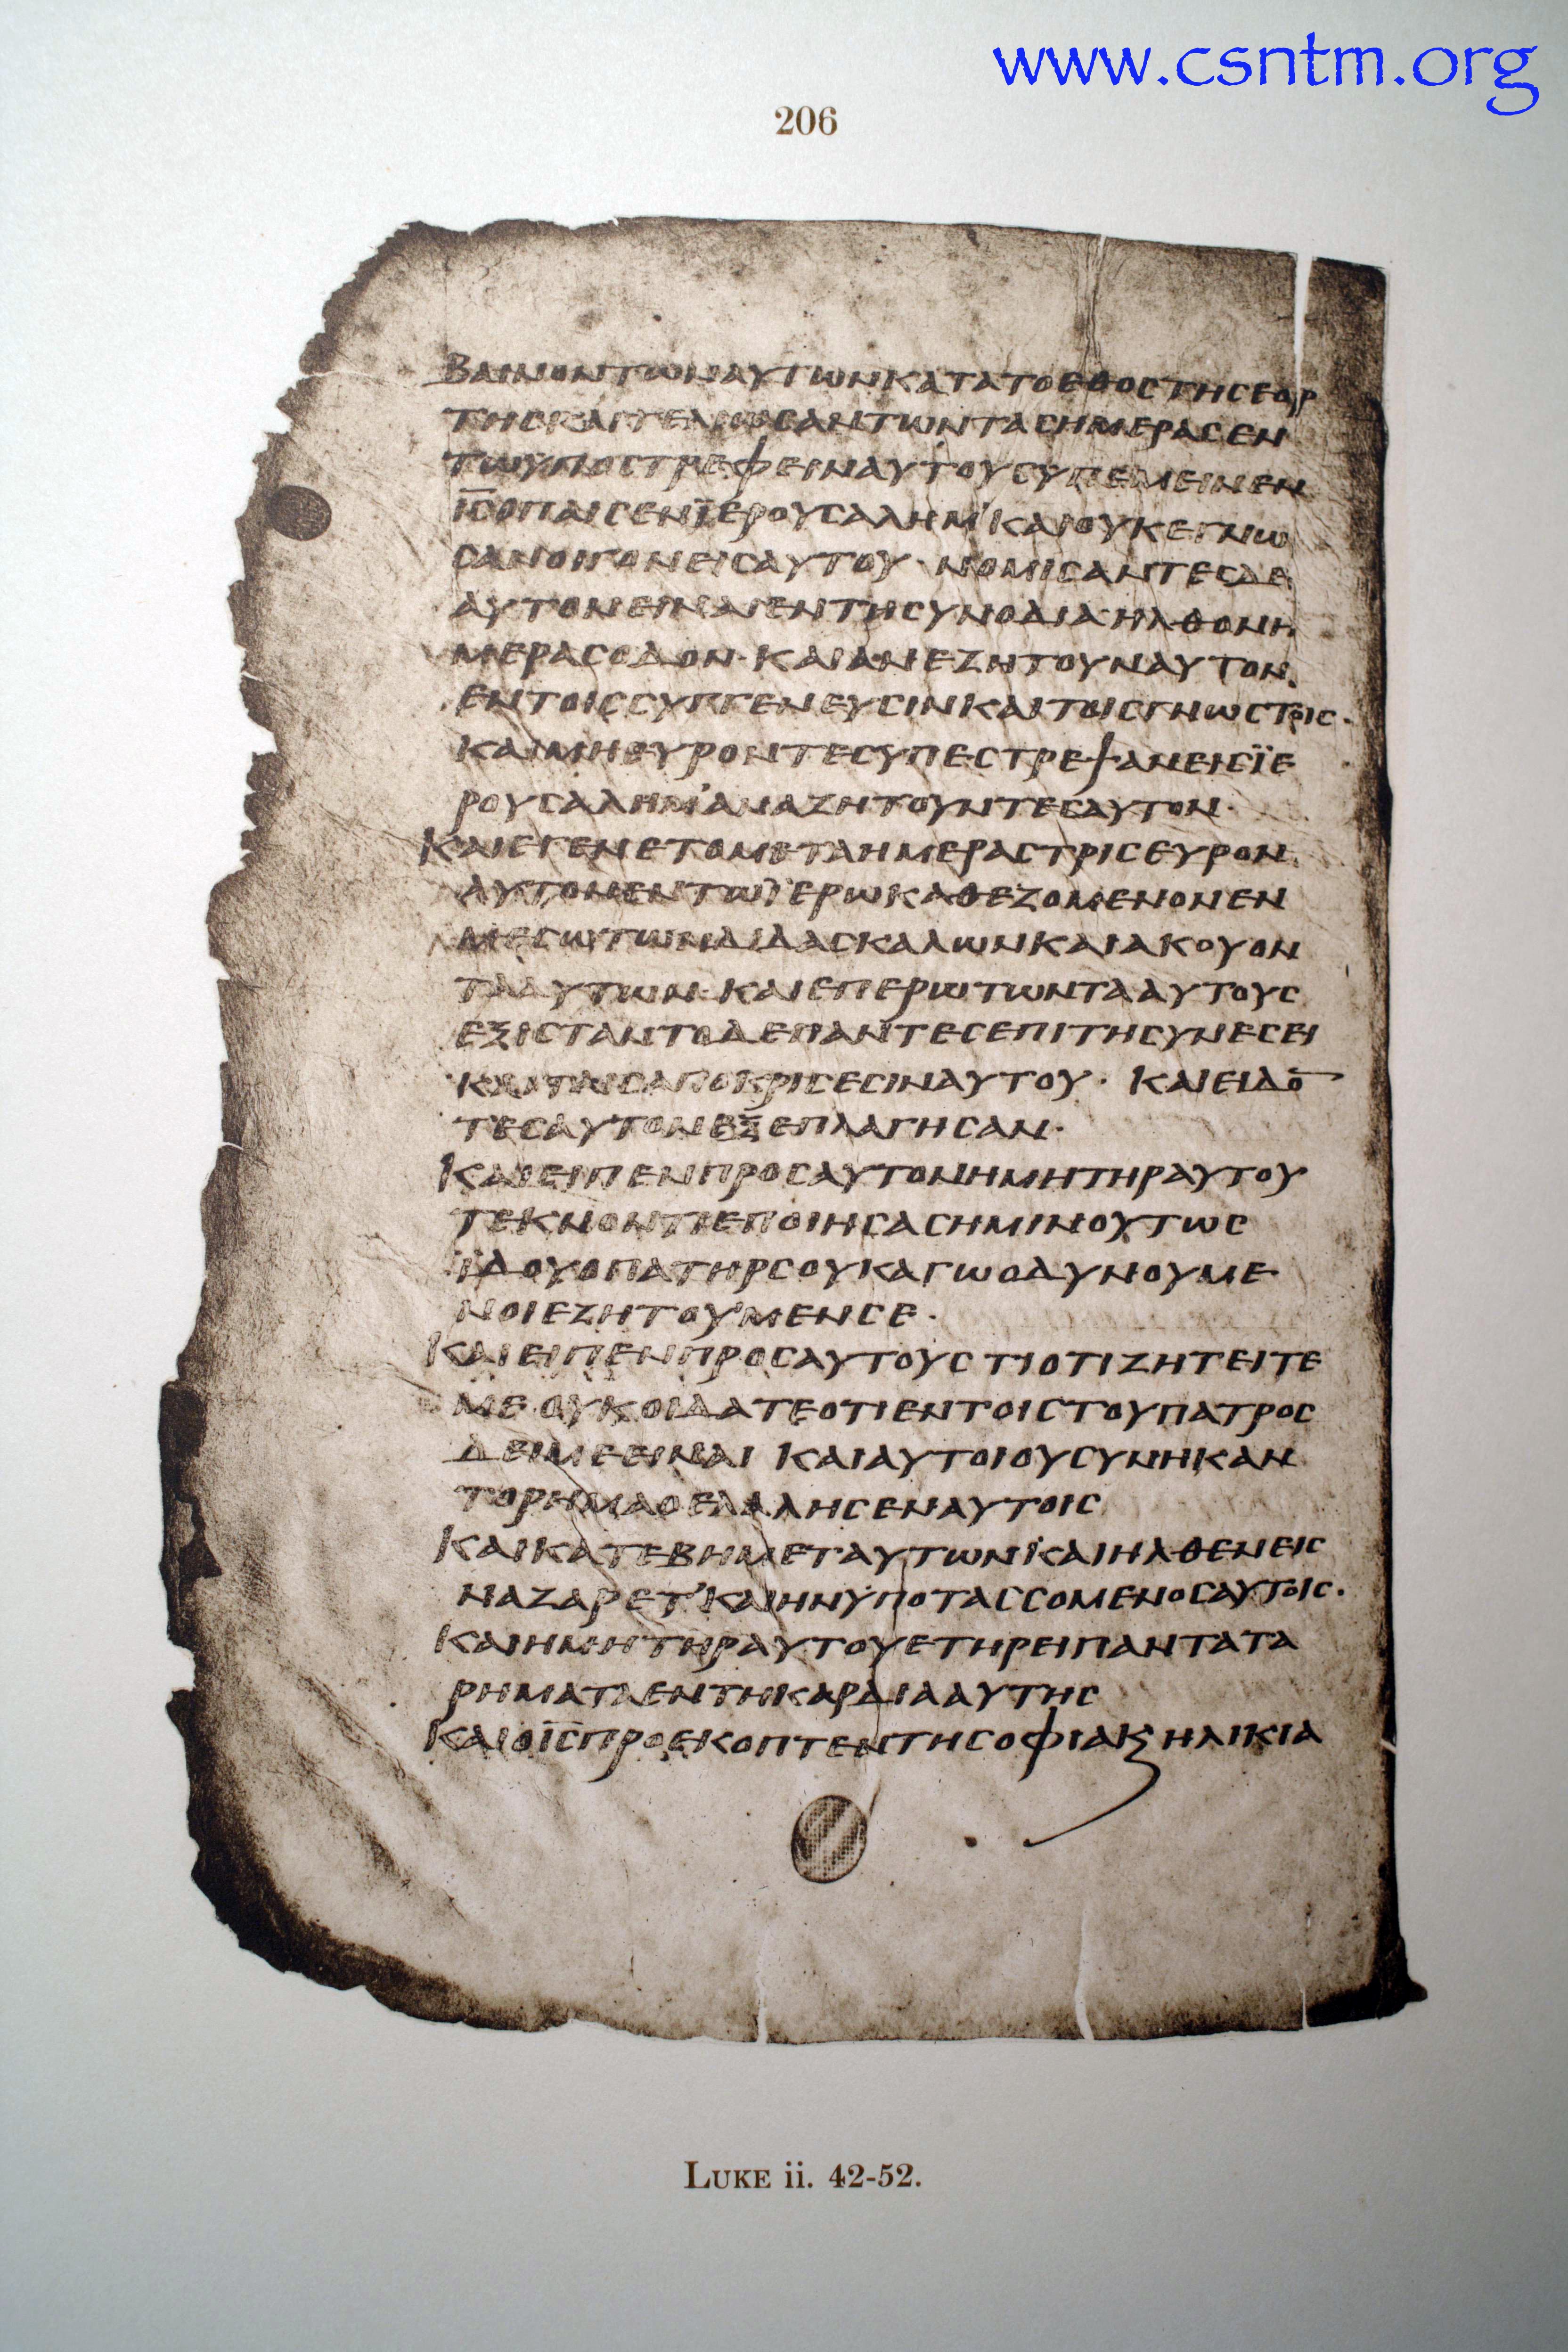 www.csntm.org
206
ΒΑΙΝΟΝΤωΝΑΥΤωΝΚΑΤΑΤΟΕΘΟϹΤΗϹΕΟΡ
ΤΗϹΚΑΙΤΕΛΙωϹΑΝΤωΝΤΑϹΗΜΕΡΑϹΕΝ
ΤωΥΠΟϹΤΡΕΦΕΙΝΑΥΤΟΥϹΥΠΕΜΕΙΝΕΝ
ΙϹ̅ΟΠΑΙϹΕΝΪΕΡΟΥϹΑΛΗΜ'ΚΑΙΟΥΚΕΓΝω
ϹΑΝΟΙΓΟΝΕΙϹΑΥΤΟΥ·ΝΟΜΙϹΑΝΤΕϹΔΕ
ΑΥΤΟΝΕΙΝΑΙΕΝΤΗϹΥΝΟΔΙΑΗΛΘΟΝΗ
ΜΕΡΑϹΟΔΟΝ·ΚΑΙΑΝΕΖΗΤΟΥΝΑΥΤΟΝ
ΕΝΤΟΙϹϹΥΓΓΕΝΕΥϹΙΝΚΑΙΤΟΙϹΓΝωϹΤΟΙϹ·
ΚΑΙΜΗΕΥΡΟΝΤΕϹΥΠΕϹΤΡΕΨΑΝΕΙϹΪΕ
ΡΟΥϹΑΛΗΜ'ΑΝΑΖΗΤΟΥΝΤΕϹΑΥΤΟΝ·
ΚΑΙΕΓΕΝΕΤΟΜΕΤΑΗΜΕΡΑϹΤΡΙϹΕΥΡΟΝ
ΑΥΤΟΝΕΝΤωΪΕΡωΚΑΘΕΖΟΜΕΝΟΝΕΝ
ΜΕϹωΤωΝΔΙΔΑϹΚΑΛωΝΚΑΙΑΚΟΥΟΝ
ΤΑΑΥΤωΝ·ΚΑΙΕΠΕΡωΤωΝΤΑΑΥΤΟΥϹ
ΕΞΙϹΤΑΝΤΟΔΕΠΑΝΤΕϹΕΠΙΤΗϹΥΝΕϹΕΙ
ΚΑΙΤΑΙϹΑΠΟΚΡΙϹΕϹΙΝΑΥΤΟΥ·ΚΑΙΕΙΔΟ̅
ΤΕϹΑΥΤΟΝΕΞΕΠΛΑΓΗϹΑΝ·
ΚΑΙΕΙΠΕΝΠΡΟϹΑΥΤΟΝΗΜΗΤΗΡΑΥΤΟΥ
ΤΕΚΝΟΝΤΙΕΠΟΙΗϹΑϹΗΜΙΝΟΥΤωϹ
ΪΔΟΥΟΠΑΤΗΡϹΟΥΚΑΓωΟΔΥΝΟΥΜΕ
ΝΟΙΕΖΗΤΟΥΜΕΝϹΕ·
ΚΑΙΕΙΠΕΝΠΡΟϹΑΥΤΟΥϹΤΙΟΤΙΖΗΤΕΙΤΕ
ΜΕ·ΟΥΚΟΙΔΑΤΕΟΤΙΕΝΤΟΙϹΤΟΥΠΑΤΡΟϹ
ΔΕΙΜΕΕΙΝΑΙ ΚΑΙΑΥΤΟΙΟΥϹΥΝΗΚΑΝ
ΤΟΡΗΜΑΟΕΛΑΛΗϹΕΝΑΥΤΟΙϹ
ΚΑΙΚΑΤΕΒΗΜΕΤΑΥΤωΝΚΑΙΗΛΘΕΝΕΙϹ
ΝΑΖΑΡΕΤ'ΚΑΙΗΝΥΠΟΤΑϹϹΟΜΕΝΟϹΑΥΤΟΙϹ·
ΚΑΙΗΜΗΤΗΡΑΥΤΟΥΕΤΗΡΕΙΠΑΝΤΑΤΑ
ΡΗΜΑΤΑΕΝΤΗΚΑΡΔΙΑΑΥΤΗϹ
ΚΑΙΟΙϹ̅ΠΡΟΕΚΟΠΤΕΝΤΗϹΟΦΙΑϗΗΛΙΚΙΑ
LUKE ii. 42-52.